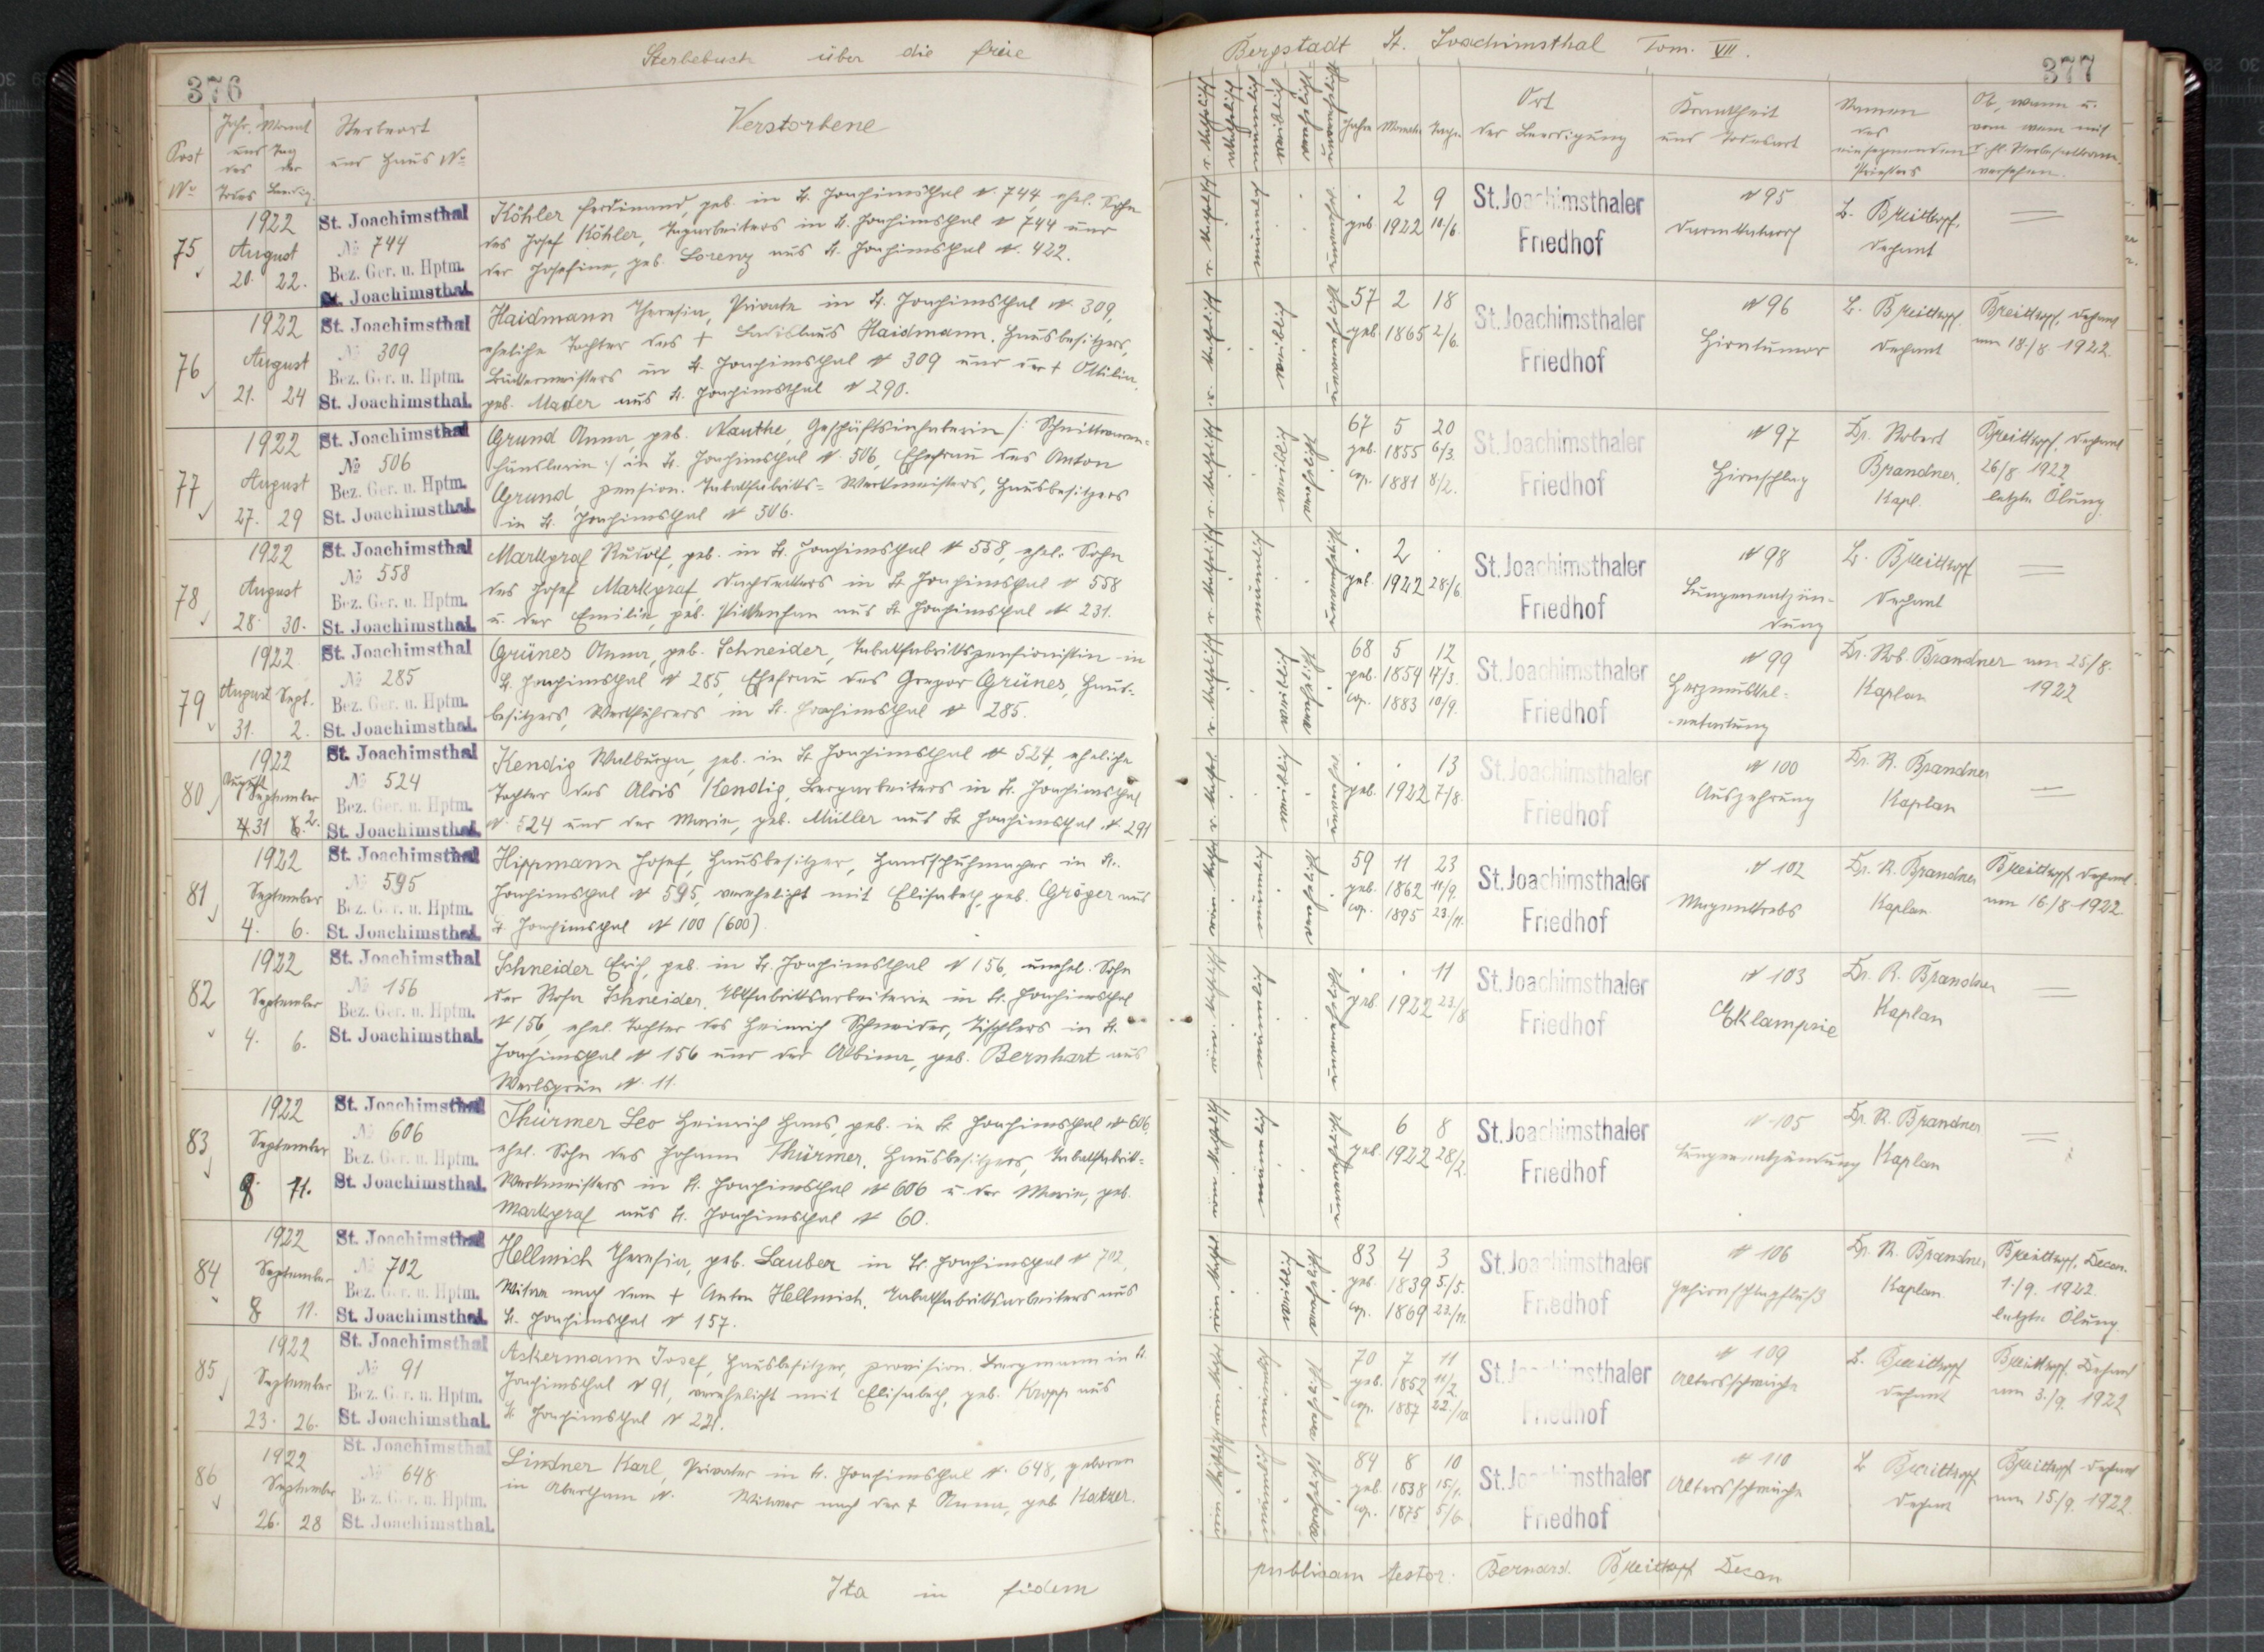 376
Sterbebuch über die freie
Post No
Jahr, Monat und Tag des Todes der Beerdig.
Sterbeort und Haus No
Verstorbene
75
1922
August
20. 22.
St. Joachimsthal
No 744
Bez. Ger. u. Hptm.
St. Joachimsthal.
Köhler Ferdinand, geb. in St. Joachimsthal No 744, ehel. Sohn
des Josef Köhler, Tagarbeiters in St. Joachimsthal No 744 und
der Josefine, geb. Lorenz aus St. Joachimsthal No. 422.
76
1922
August
21. 24
St. Joachimsthal
No 309
Bez. Ger. u. Hptm.
St. Joachimsthal.
Haidmann Theresia, Private in St. Joachimsthal No. 309,
eheliche Tochter des † Ladislaus Haidmann, Hausbesitzers,
Bäckermeisters in St. Joachimsthal No 309 und der † Ottilia,
geb. Mader aus St. Joachimsthal No 290.
77
1922
August
27. 29
St. Joachimsthal
No 506
Bez. Ger. u. Hptm.
St. Joachimsthal.
Grund Anna, geb. Nauthe, Geschäftsinhaberin /: Schnittwaren-
händlerin :/ in St. Joachimsthal No. 506, Ehefrau des Anton
Grund, pension. Tabakfabriks-Werkmeisters, Hausbesitzers
in St. Joachimsthal No 506.
78
1922
August
28. 30.
St. Joachimsthal
No 558
Bez. Ger. u. Hptm.
St. Joachimsthal.
Markgraf Rudolf, geb. in St. Joachimsthal No 558, ehel. Sohn
des Josef Markgraf, Dachdeckers in St Joachimsthal No 558
u. der Emilie, geb. aus St Joachimsthal No 231.
79
1922
August Sept.
31. 2.
St. Joachimsthal
No 285
Bez. Ger. u. Hptm.
St. Joachimsthal.
Grünes Anna, geb. Schneider, Tabakfabrikspensionistin in
St. Joachimsthal No 285, Ehefrau des Gregor Grünes, Haus-
besitzers, Werkführers in St. Joachimsthal No 285.
80
1922
August
September
31 2.
St. Joachimsthal
No 524
Bez. Ger. u. Hptm.
St. Joachimsthal.
Kendig Walburga, geb. in St Joachimsthal No 524, eheliche
Tochter des Alois Kendig, Bergarbeiters in St. Joachimsthal
No. 524 und der Marie, geb. Müller aus St Joachimsthal No. 291
81
1922
September
4. 6.
St. Joachimsthal
No 595
Bez. Ger. u. Hptm.
St. Joachimsthal.
Hippmann Josef, Hausbesitzer, Handschuhmacher in St.
Joachimsthal No 595, verehelicht mit Elisabeth, geb. Gröger aus
St. Joachimsthal No 100 (600).
82
1922
September
4. 6.
St. Joachimsthal
No 156
Bez. Ger. u. Hptm.
St. Joachimsthal.
Schneider Erich, geb. in St. Joachimsthal No 156, unehel. Sohn
der Rosa Schneider, Tbkfabriksarbeiterin in St. Joachimsthal
No 156, ehel. Tochter des Heinrich Schneider, Tischlers in St.
Joachimsthal No 156 und der Albina, geb. Bernhart aus
Werlsgrün No. 11.
83
1922
September
8. 11.
St. Joachimsthal
No 606
Bez. Ger. u. Hptm.
St. Joachimsthal.
Thürmer Leo Heinrich Hans, geb. in St Joachimsthal No 606,
ehel. Sohn des Johann Thürmer, Hausbesitzers, Tabakfabrik-
Werkmeisters in St. Joachimsthal No 606 u. der Marie, geb.
Markgraf aus St. Joachimsthal No 60.
84
1922
September
8 11.
St. Joachimsthal
No 702
Bez. Ger. u. Hptm.
St. Joachimsthal.
Hellmich Theresia, geb. Lauber in St. Joachimsthal No 702,
Witwe nach dem † Anton Hellmich, Tabakfabriksarbeiters aus
St. Joachimsthal No 157.
85
1922
September
23. 26.
St. Joachimsthal
No 91
Bez. Ger. u. Hptm.
St. Joachimsthal.
Askermann Josef, Hausbesitzer, provision. Bergmann in St.
Joachimsthal No 91, verehelicht mit Elisabeth, geb. Kropp aus
St Joachimsthal No 221.
86
1922
September
26. 28
St. Joachimsthal
No 648
Bez. Ger. u. Hptm.
St. Joachimsthal.
Lindner Karl, Privater in St. Joachimsthal No. 648, geboren
in Abertham No. Witwer nach der † Anna, geb. Katzer.
Ita in fidem
Bergstadt St. Joachimsthal Tom. VII.
377
Jahre Monate Tage
Ort der Beerdigung
Krankheit und Todesart
Namen des einsegnenden Priesters
Ob, wann u. von wem mit d. hl. Sterbesakram. versehen.
r. katholisch männlich unverehelicht
. 2 9
geb. 1922 10./6.
St. Joachimsthaler
Friedhof
No 95
Darmkatarrh
B. Breitkopf,
Dechant
r. katholisch weiblich unverehelicht
57 2 18
geb. 1865 2/6.
St. Joachimsthaler
Friedhof
No 96
Hirntumor
B. Breitkopf.
Dechant
Breitkopf, Dechant
am 18./8 1922.
r. katholisch weiblich verehelicht
67 5 20
geb. 1855 6/3.
cop. 1881 8/2.
St. Joachimsthaler
Friedhof
No 97
Hirnschlag
Dr. Robert
Brandner.
Kapl.
Breitkopf, Dechant
26/8 1922
letzte Ölung.
r. katholisch männlich unverehelicht
. 2 .
geb. 1922 28./6.
St. Joachimsthaler
Friedhof
No 98
Lungenentzün-
dung
B. Breitkopf
Dechant
r. katholisch weiblich verehelicht
68 5 12
geb. 1854 17/3.
cop. 1883 10/9.
St. Joachimsthaler
Friedhof
No 99
Herzmuskel-
-entartung
Dr. Rob. Brandner
Kaplan
am 25/8.
1922
r. kathol. weiblich
. . 13
geb. 1922 7/8.
St. Joachimsthaler
Friedhof
No 100
Auszehrung
Dr. R. Brandner
Kaplan
59 11 23
geb. 1862 11/9.
cop. 1895 23./11.
St. Joachimsthaler
Friedhof
No 102
Magenkrebs
Dr. R. Brandner
Kaplan
Breitkopf Dechant.
am 16/8 1922
röm. katholisch männlich unverehelicht
. . 11
geb 1922 23/8
St. Joachimsthaler
Friedhof
No 103
Eklampsie
Dr. R. Brandner
Kaplan
röm katholisch männlich unverehelicht
6 8
geb. 1922 28/2.
St. Joachimsthaler
Friedhof
No 105
Lungenentzündung
Dr. R. Brandner
Kaplan
weiblich verehelicht
83 4 3
geb. 1839 5./5.
cop. 1869 23./11.
St. Joachimsthaler
Friedhof
No 106
Gehirnschlagfluß
Dr. R. Brandner
Kaplan
Breitkopf, Decan.
1./9. 1922.
letzte Ölung.
70 7 11
geb. 1852 11/2.
cop. 1887 22./10
St. Joachimsthaler
Friedhof
No 109
Altersschwäche
B. Breitkopf
Dechant
Breitkopf. Dechant
am 3./9. 1922
84 8 10
geb. 1838 15/1.
cop. 1875 5/6.
St. Joachimsthaler
Friedhof
No 110
Altersschwäche
B Breitkopf
Dechant
Breitkopf Dechant
am 15./9. 1922.
publicam testor: Bernard. Breitkopf Decan